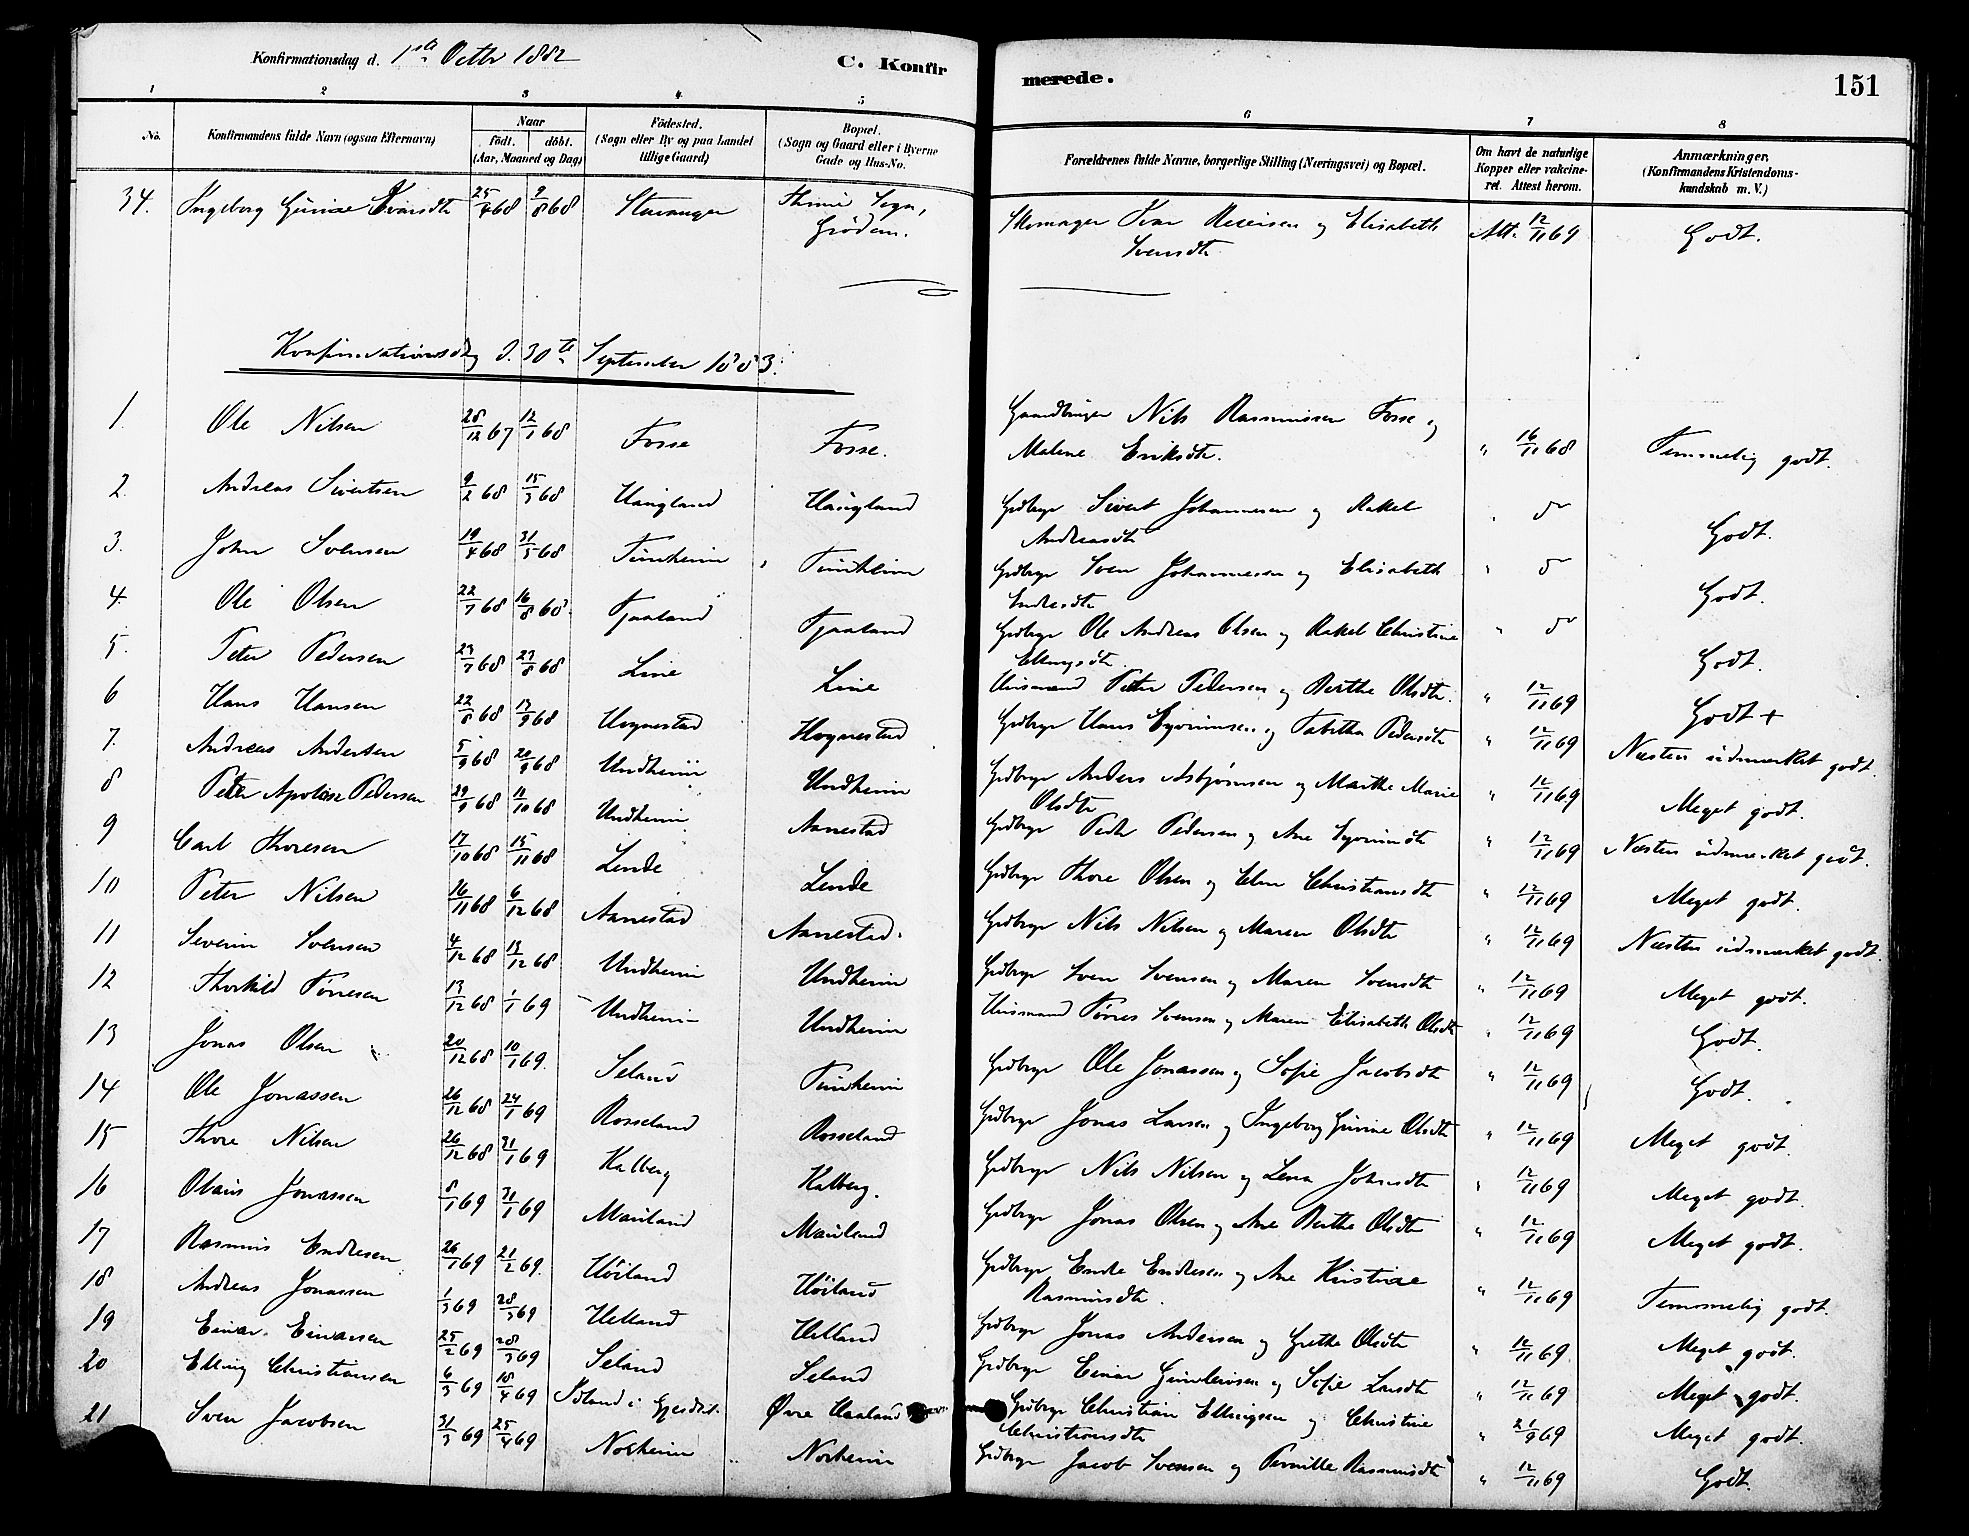 Konfirmationsdag d. 1ste Octbr 1882
C. Konfir
merede.
151
1 2 3 4 5 6 7 8
No. Konfirmandens fulde Navn (ogsaa Efternavn) Naar født. døbt. (Aar, Maaned og Dag) Fødested. (Sogn eller By og paa Landet tillige Gaard) Bopæl. (Sogn og Gaard eller i Byerne Gade og Hus-No. Forældrenes fulde Navne, borgerlige Stilling (Næringsvei) og Bopæl. Om havt de naturlige Kopper eller vakcineret. Attest herom. Anmærkninger. (Konfirmandens Kristendomskundskab m. V.)
34. Ingeborg Gurine 25/4 68 9/8 68 Stavanger Sogn, Skomager Ivar og Elisabeth Att. 12/11 69 Godt.
Grødem. Svensdtr
Konfirmationsdag d. 30te September 1883.
1. Ole Nilsen 28/12 67 12/1 68 Fosse Fosse. Gaardbruger Nils Rasmussen Fosse og
Malene Eriksdtr. " 16/11 68 Temmelig godt.
2. Andreas Sivertsen 9/2 68 15/3 68 Haugland Haugland Grdbrgr Sivert Johannesen og Rakel " do Godt.
Andreasdtr
3. John Svensen 19/4 68 31/5 68 Tunheim Tunheim Grdbrgr Sven Johannesen og Elisabeth " do Godt.
Endresdtr
4. Ole Olsen 22/7 68 16/8 68. Tjaaland Tjaaland Grdbrgr Ole Andreas Olsen og Rakel Christine " do Godt.
Ellingsdtr.
5. Peter Pedersen 23/7 68 23/8 68 Line Line Husmand Peter Pedersen og Berthe Olsdtr. " 12/11 69 Godt +
6 Hans Hansen 22/8 68 13/9 68 Hognestad Hognestad Grdbrgr Hans og Tabitha Pedersdtr " 12/11 69 Næsten udmærket godt
7. Andreas Andersen 5/9 68 20/9 68 Undheim Undheim Grdbrgr Anders Asbjørnsen og Marthe Marie " 12/11 69 Meget godt.
Olsdtr
8 Peter Pedersen 29/9 68 11/10 68 Undheim Aanestad Grdbrgr Peder Pedersen og Ane " 12/11 69 Næsten udmærket godt.
9 Carl Thoresen 17/10 68 15/11 68 Lende Lende Grdbrgr Thore Olsen og Christiansdtr " 12/11 69 Meget godt.
10 Peter Nilsen 16/11 68 6/12 68 Aanestad Aanestad. Grdbrgr Nils Nilsen og Maren Olsdtr " 12/11 69 Næsten udmærket godt.
11 Severin Svensen 4/12 68 13/12 68 Undheim Undheim Grdbrgr Sven Svensen og Maren Svensdtr " 12/11 69 Meget godt.
12 Thorkild Tørresen 13/12 68 1/1 69 Undheim Undheim Husmand Tørres Svensen og Maren Elisabeth Olsdtr " 12/11 69 Godt.
13 Jonas Olsen 20/12 68 10/1 69. Seland Tunheim Grdbrgr Ole Jonassen og Sofie Jacobsdtr " 12/11 69 Godt.
14 Ole Jonassen 26/12 68 24/1 69 Rosseland Rosseland Grdbrgr Jonas Larsen og Ingeborg Gurine Olsdtr " 12/11 69 Meget godt.
15 Thore Nilsen 26/12 68 31/1 69 Kalberg Kalberg. Grdbrgr Nils Nilsen og Lena Johnsdtr " 12/11 69 Meget godt.
16 Olaus Jonassen 8/1 69 31/1 69 Mauland Mauland Grdbrgr Jonas Olsen og Ane Berthe Olsdtr " 12/11 69 Meget godt.
17 Rasmus Endresen 26/1 69 21/2 69. Høiland Høiland Grdbrgr Endre Endresen og Ane Kristine " 12/11 69 Temmelig godt.
Rasmusdtr.
18 Andreas Jonassen 1/3 69 28/3 69 Helland Helland Grdbrgr Jonas Andersen og Grethe Olsdtr " 12/11 69. Meget godt.
19 Einar Einarsen 25/2 69 28/3 69 Seland Seland Grdbrgr Einar og Sofie Larsdtr " 12/11 69 Meget godt.
20 Elling Christiansen 6/3 69 18/4 69 i Gjesdal. Øvre Haaland Grdbrgr Christian Ellingsen og Christine " 21/9 69 Meget godt.
Christiansdtr
21 Sven Jacobsen 31/3 69 25/4 69 Norheim Norheim Grdbrgr Jacob Svensen og Pernille Rasmusdtr " 12/11 69 Godt.